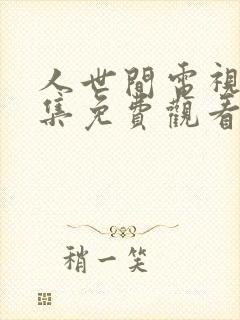 人世間電視
集免費觀看
稍一笑